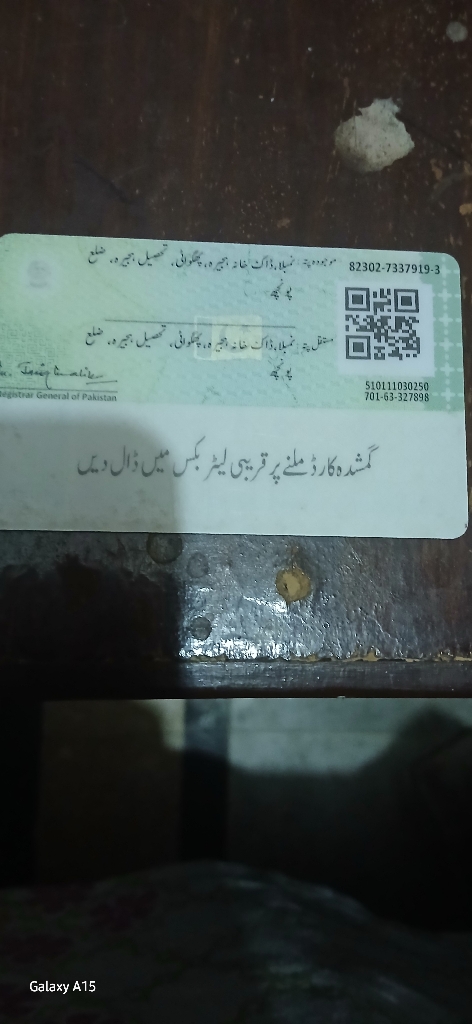 82302-7337919-3
موجودہ پتہ: نمبلا، ڈاک خانہ ہجیرہ، چھگوائی، تحصیل ہجیرہ، ضلع
پونچھ
مستقل پتہ: نمبلا، ڈاک خانہ ہجیرہ، چھگوائی، تحصیل ہجیرہ، ضلع
پونچھ
Registrar General of Pakistan
510111030250
701-63-327898
گمشدہ کارڈ ملنے پر قریبی لیٹر بکس میں ڈال دیں
Galaxy A15